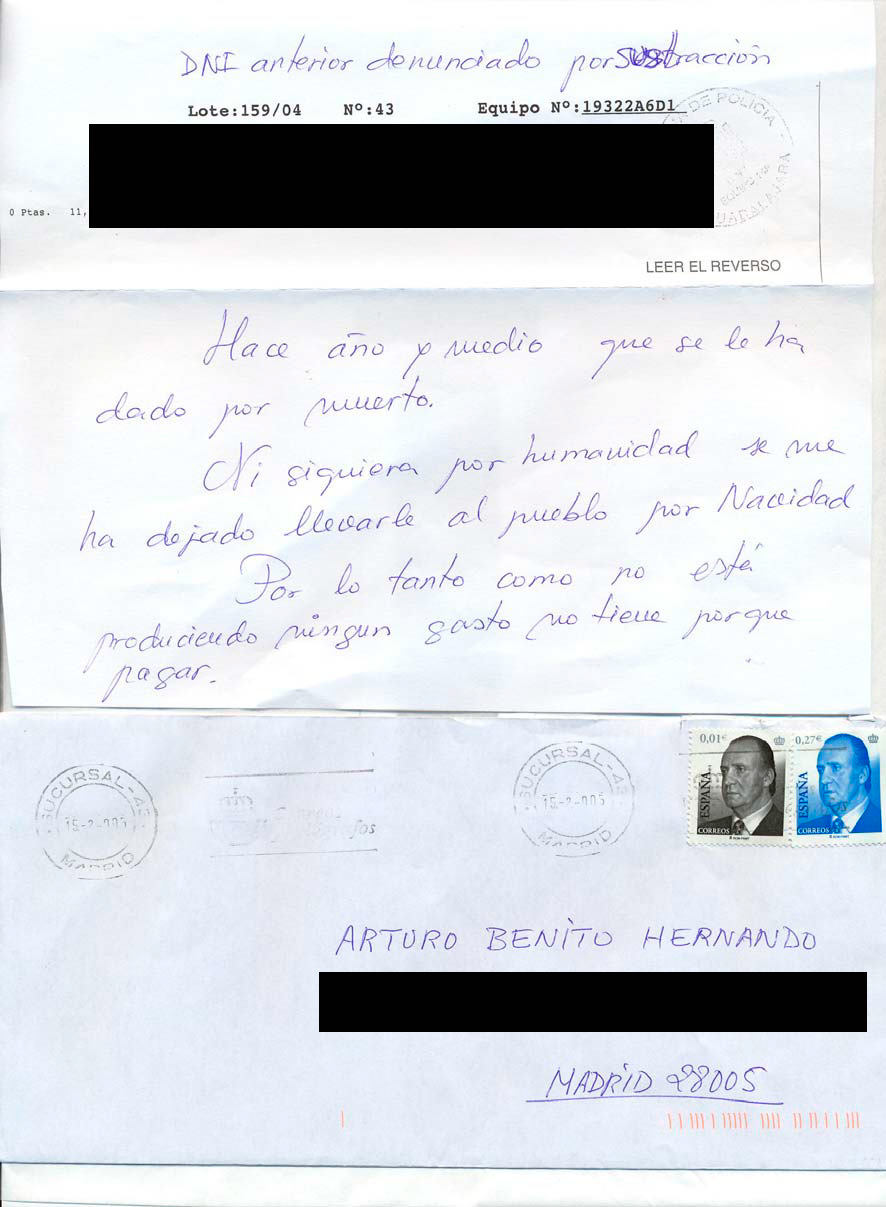 DNI anterior denunciado por sustracción
Lote:159/04 Nº:43 Equipo Nº:19322A6D1
DE POLICIA
EQUIPO
GUADALAJARA
0 Ptas. 11,
LEER EL REVERSO
Hace año y medio que se le ha
dado por muerto.
Ni siquiera por humanidad se me
ha dejado llevarle al pueblo por Navidad
Por lo tanto como no está
produciendo ningun gasto no tiene porque
pagar.
0,01€ 0,27€
ESPAÑA ESPAÑA
CORREOS CORREOS
SUCURSAL-43 SUCURSAL-43
15-2-005 15-2-005
MADRID MADRID
ARTURO BENITO HERNANDO
MADRID 28005